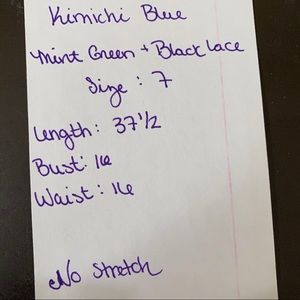 Kimichi Blue
Mint Green + Black Lace
Size : 7
Length: 37 1/2
Bust: 16
Waist: 16
No Stretch